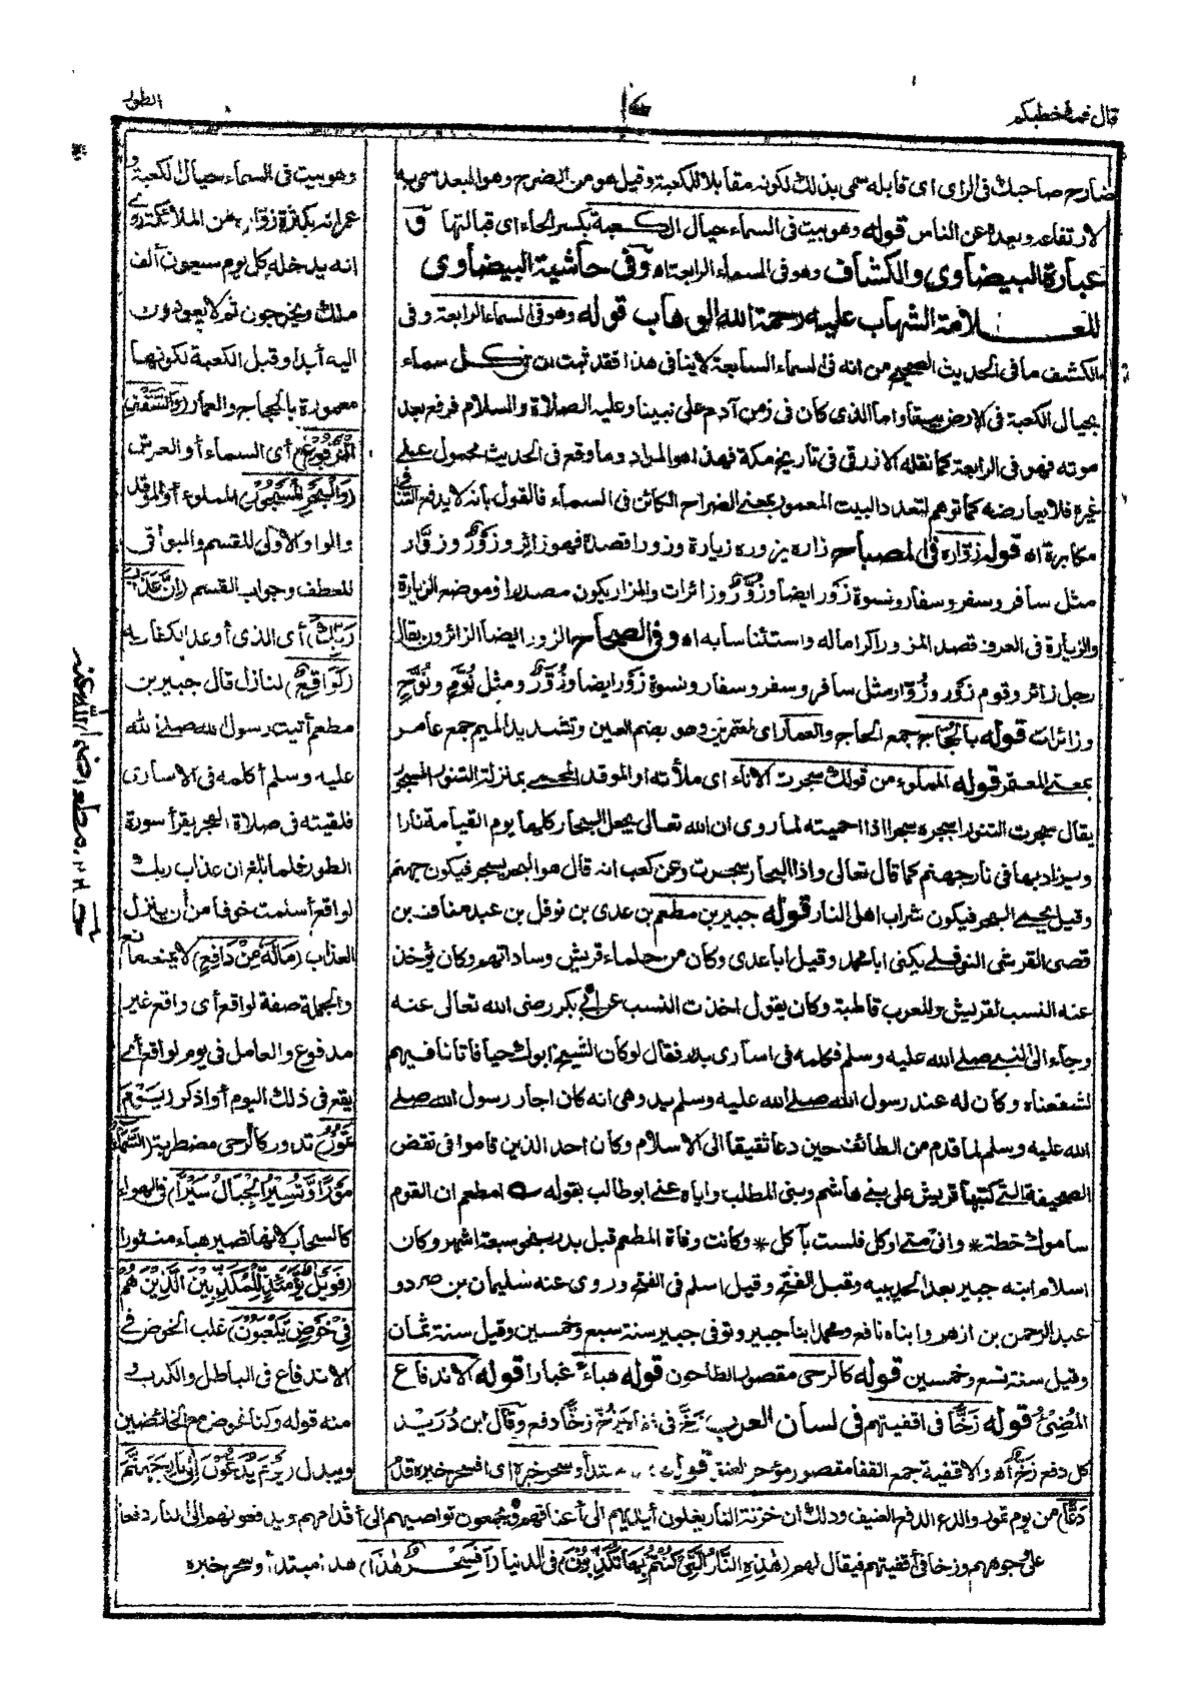 قال فما خطبكم
الطور
ضارح صاحبك فى الراى اى قابله سمى بذلك لكونه مقابلا للكعبة وقيل هو من الضرح وهو البعد سمى به
لارتفاعه وبعده عن الناس قوله وهو بيت فى السماء حيال الكعبة بكسر الحاء اى قبالتها و
عبارة البيضاوى والكشاف وهو فى السماء الرابعة اه وفى حاشية البيضاوى
للعلامة الشهاب عليه رحمة الله الوهاب قوله وهو فى السماء الرابعة وفى
الكشف ما فى الحديث الصحيح من انه فى السماء السابعة لا ينافى هذا فقد ثبت ان فى كل سماء
بحيال الكعبة فى الارض بيتا واما الذى كان فى زمن آدم على نبينا وعليه الصلاة والسلام فرفع بعد
موته فهو فى الرابعة كما نقله الازرقى فى تاريخ مكة فهذا هو المراد وما وقع فى الحديث محمول على
غيره فلا يعارضه كما توهم لتعدد البيت المعمور بمعنى الضراح الكائن فى السماء فالقول بانه لا يدفع التنافى
مكابرة اه قوله زواره فى المصباح زاره يزوره زيارة وزورا قصده فهو زائر وزَوْرٌ وزوّار
مثل سافر وسفر وسفار ونسوة زَوْر ايضا وزُوَّر وزائرات والمزار يكون مصدرا وموضع الزيارة
والزيارة فى العرف قصد المزور اكراما له واستئناسا به اه وفى الصحاح الزور ايضا الزائرون يقال
رجل زائر وقوم زَوْر وزُوّار مثل سافر وسفر وسفار ونسوة زَوْر ايضا وزُوَّرٌ ومثل نُوَّمٍ ونُوَّحٍ
وزائرات قوله بالحجاج جمع الحاج والعمار اى المعتمرين وهو بضم العين وتشديد الميم جمع عامر
بمعنى المعتمر قوله المملوء من قولك سجرت الاناء اى ملأته او الموقد المحمى بمنزلة التنور المسجور
يقال سجرت التنور اسجره سجرا اذا احميته لما روى ان الله تعالى يجعل البحار كلها يوم القيامة نارا
ويزاد بها فى نار جهنم كما قال تعالى واذا البحار سجرت وعن كعب انه قال هو البحر يسجر فيكون جهنم
وقيل يحمى البحر فيكون شراب اهل النار قوله جبير بن مطعم بن عدى بن نوفل بن عبد مناف بن
قصى القرشى النوفلى يكنى ابا محمد وقيل ابا عدى وكان من حلماء قريش وساداتهم وكان يؤخذ
عنه النسب لقريش وللعرب قاطبة وكان يقول اخذت النسب عن ابى بكر رضى الله تعالى عنه
وجاء الى النبى صلى الله عليه وسلم فكلمه فى اسارى بدر فقال لو كان الشيخ ابوك حيا فاتانا فيهم
لشفعناه وكان له عند رسول الله صلى الله عليه وسلم يد وهى انه كان اجار رسول الله صلى
الله عليه وسلم لما قدم من الطائف حين دعا ثقيفا الى الاسلام وكان احد الذين قاموا فى نقض
الصحيفة التى كتبتها قريش على بنى هاشم وبنى المطلب واياه عنى ابو طالب بقوله امطعم ان القوم
ساموك خطة * وانى متى اوكل فلست بآكل * وكانت وفاة المطعم قبل بدر بنحو سبعة اشهر وكان
اسلام ابنه جبير بعد الحديبيه وقبل الفتح وقيل اسلم فى الفتح وروى عنه سليمان بن صرد و
عبد الرحمن بن ازهر وابناه نافع ومحمد ابنا جبير وتوفى جبير سنة سبع وخمسين وقيل سنة ثمان
وقيل سنة تسع وخمسين قوله كالرحى مقصور الطاحون قوله هباء غبارا قوله الاندفاع
المُضِىُّ قوله زخًّا فى اقفيتهم فى لسان العرب زخّ فى قفاه يزخّ زخًّا دفع وقال ابن دُرَيد
كل دفع زخّ اه والاقفية جمع القفا مقصور مؤخر العنق قوله مبتدأ وسحر خبره اى افسحر خبره قدم
وهو بيت فى السماء حيال الكعبة و
عمرانه بكثرة زواره من الملائكة روى
انه يدخله كل يوم سبعون ألف
ملك ويخرجون ثم لا يعودون
اليه أبدا وقيل الكعبة لكونها
معمورة بالحجاج والعمار (وَالسَّقْفِ
الْمَرْفُوعِ) أى السماء أو العرش
(وَالْبَحْرِ الْمَسْجُورِ) المملوء أو الموقد
والواو الاولى للقسم والبواقى
للعطف وجواب القسم (اِنَّ عَذَابَ
رَبِّكَ) أى الذى أوعد الكفار به
(لَوَاقِعٌ) لنازل قال جبير بن
مطعم أتيت رسول الله صلى الله
عليه وسلم أكلمه فى الاسارى
فلقيته فى صلاة الفجر يقرأ سورة
الطور فلما بلغ ان عذاب ربك
لواقع أسلمت خوفا من أن ينزل
العذاب (مَالَهُ مِنْ دَافِعٍ) لا يمنعه مانع
والجملة صفة لواقع أى واقع غير
مدفوع والعامل فى يوم لواقع أى
يقع فى ذلك اليوم أو اذكر (يَوْمَ
تَمُوْرُ) تدور كالرحى مضطربة (السَّمَآءُ
مَوْرًا وَّتَسِيْرُ الْجِبَالُ سَيْرًا) فى الهواء
كالسحاب لانها تصير هباء منثورا
(فَوَيْلٌ يَّوْمَئِذٍ لِّلْمُكَذِّبِيْنَ الَّذِيْنَ هُمْ
فِىْ خَوْضٍ يَّلْعَبُوْنَ) غلب الخوض فى
الاندفاع فى الباطل والكذب
منه قوله وكنا نخوض مع الخائضين
ويبدل (يَوْمَ يُدَعُّوْنَ اِلٰى نَارِ جَهَنَّمَ
دَعًّا) من يوم تمور والدع الدفع العنيف وذلك ان خزنة النار يغلون أيديهم الى أعناقهم ويجمعون نواصيهم الى أقدامهم ويدفعونهم الى النار دفعا
على وجوههم وزخا فى أقفيتهم فيقال لهم (هٰذِهِ النَّارُ الَّتِىْ كُنْتُمْ بِهَا تُكَذِّبُوْنَ) فى الدنيا (اَفَسِحْرٌ هٰذَا) هذا مبتدأ وسحر خبره